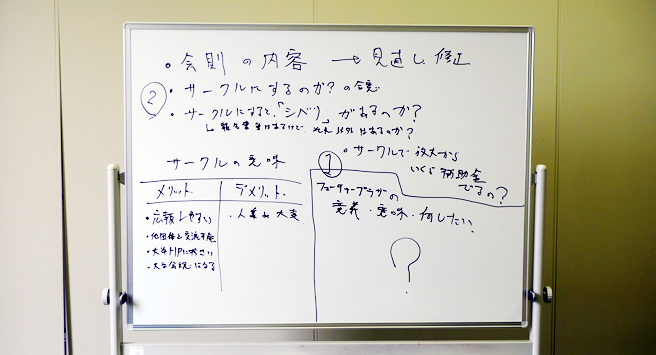 ・会則の内容 → 見直し 修正
② ・サークルにするのか？の合意
・サークルになると、「シバリ」があるのか？
↳ 報告義務はあるけど、それ以外はあるのか？
サークルの意味
メリット デメリット
・広報しやすい ・人集め大変
・他団体と交流可能
・大学HPに載
・大学会 になる
① ・サークルで放大から
いくら補助金
でるの？
フューチャー の
意義・意味・何したい？
？